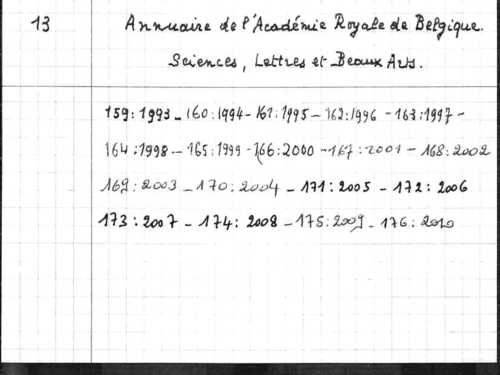 13
Annuaire de l'Académie Royale de Belgique.
Sciences, Lettres et Beaux Arts.
159:1993 - 160:1994 - 161:1995 - 162:1996 - 163:1997 -
164:1998 - 165:1999 - 166:2000 - 167:2001 - 168:2002
169:2003 - 170:2004 - 171:2005 - 172:2006
173:2007 - 174:2008 - 175:2009 - 176:2010